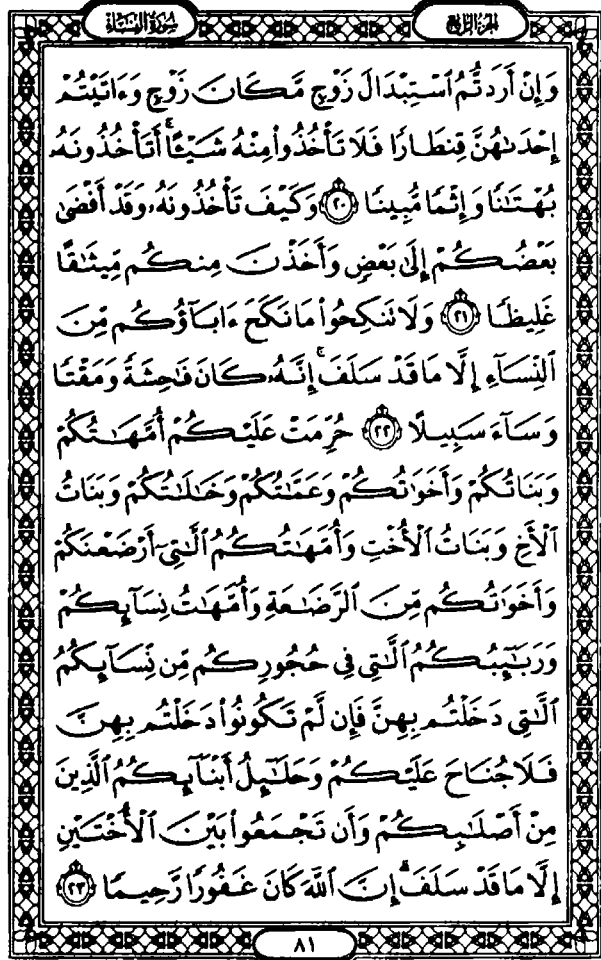 سورة النساء
الجزء الرابع
وَإِنْ أَرَدتُّمُ ٱسْتِبْدَالَ زَوْجٍ مَّكَانَ زَوْجٍ وَءَاتَيْتُمْ
إِحْدَىٰهُنَّ قِنطَارًا فَلَا تَأْخُذُوا۟ مِنْهُ شَيْـًٔا ۚ أَتَأْخُذُونَهُۥ
بُهْتَـٰنًا وَإِثْمًا مُّبِينًا ٢٠ وَكَيْفَ تَأْخُذُونَهُۥ وَقَدْ أَفْضَىٰ
بَعْضُكُمْ إِلَىٰ بَعْضٍ وَأَخَذْنَ مِنكُم مِّيثَـٰقًا
غَلِيظًا ٢١ وَلَا تَنكِحُوا۟ مَا نَكَحَ ءَابَآؤُكُم مِّنَ
ٱلنِّسَآءِ إِلَّا مَا قَدْ سَلَفَ ۚ إِنَّهُۥ كَانَ فَـٰحِشَةً وَمَقْتًا
وَسَآءَ سَبِيلًا ٢٢ حُرِّمَتْ عَلَيْكُمْ أُمَّهَـٰتُكُمْ
وَبَنَاتُكُمْ وَأَخَوَٰتُكُمْ وَعَمَّـٰتُكُمْ وَخَـٰلَـٰتُكُمْ وَبَنَاتُ
ٱلْأَخِ وَبَنَاتُ ٱلْأُخْتِ وَأُمَّهَـٰتُكُمُ ٱلَّـٰتِىٓ أَرْضَعْنَكُمْ
وَأَخَوَٰتُكُم مِّنَ ٱلرَّضَـٰعَةِ وَأُمَّهَـٰتُ نِسَآئِكُمْ
وَرَبَـٰٓئِبُكُمُ ٱلَّـٰتِى فِى حُجُورِكُم مِّن نِّسَآئِكُمُ
ٱلَّـٰتِى دَخَلْتُم بِهِنَّ فَإِن لَّمْ تَكُونُوا۟ دَخَلْتُم بِهِنَّ
فَلَا جُنَاحَ عَلَيْكُمْ وَحَلَـٰٓئِلُ أَبْنَآئِكُمُ ٱلَّذِينَ
مِنْ أَصْلَـٰبِكُمْ وَأَن تَجْمَعُوا۟ بَيْنَ ٱلْأُخْتَيْنِ
إِلَّا مَا قَدْ سَلَفَ ۗ إِنَّ ٱللَّهَ كَانَ غَفُورًا رَّحِيمًا ٢٣
٨١